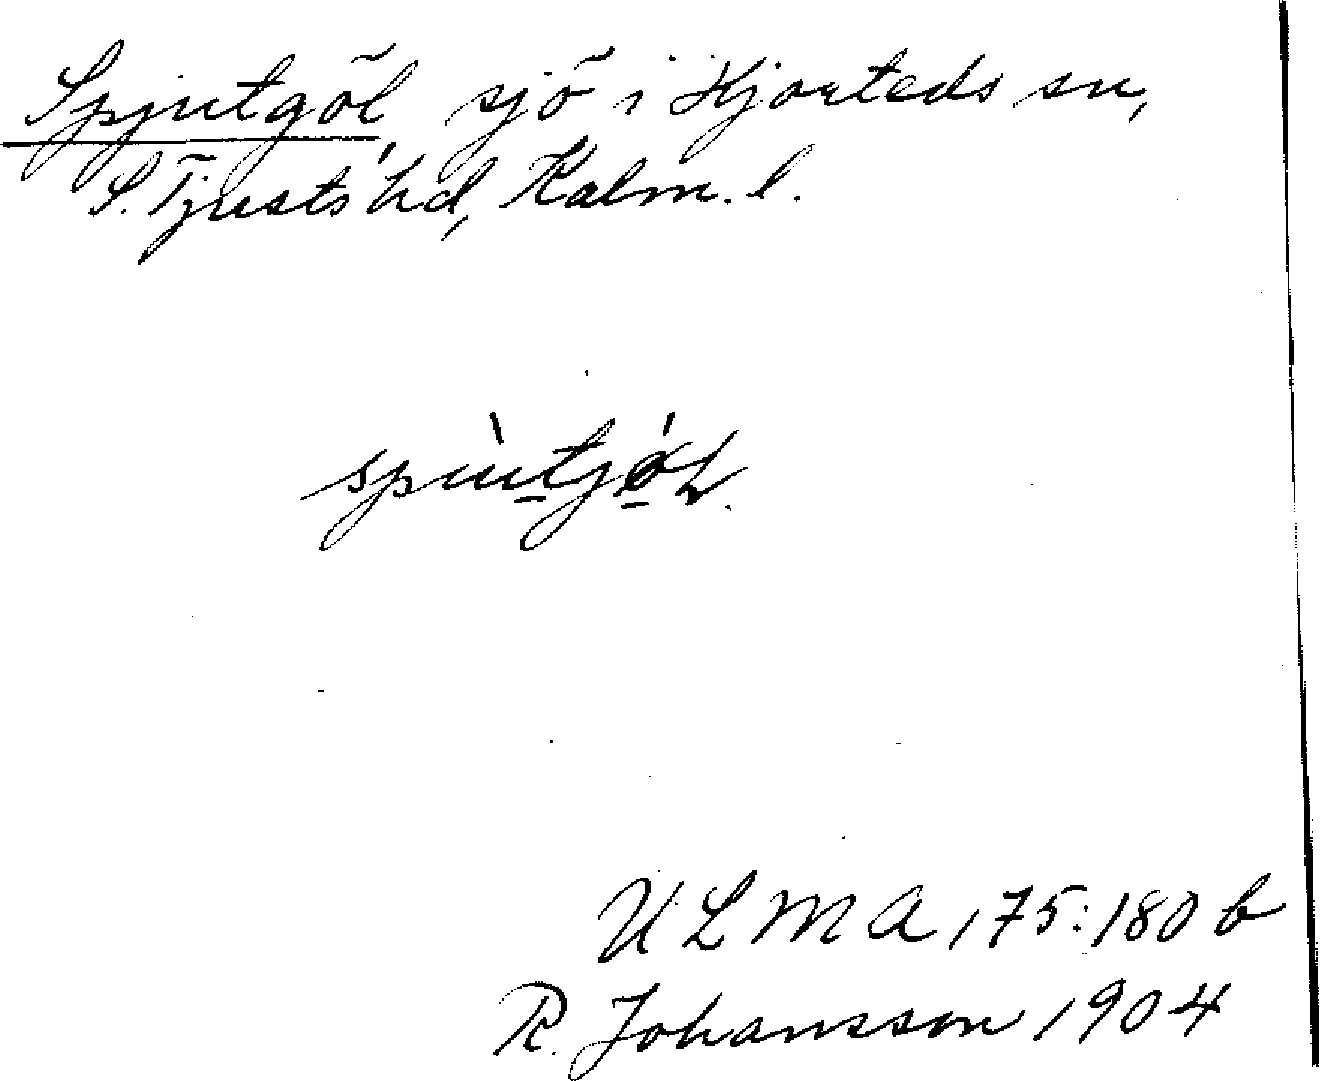 Spjutgöl, sjö i Hjorteds sn,
S. Tjusts hd, Kalm. l.
ULMA 175:180 b
R. Johansson 1904